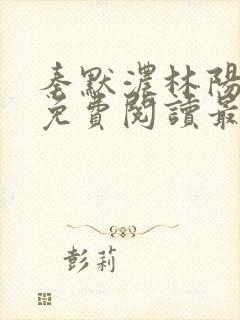 秦默濃林陽
免費閱讀最
彭莉